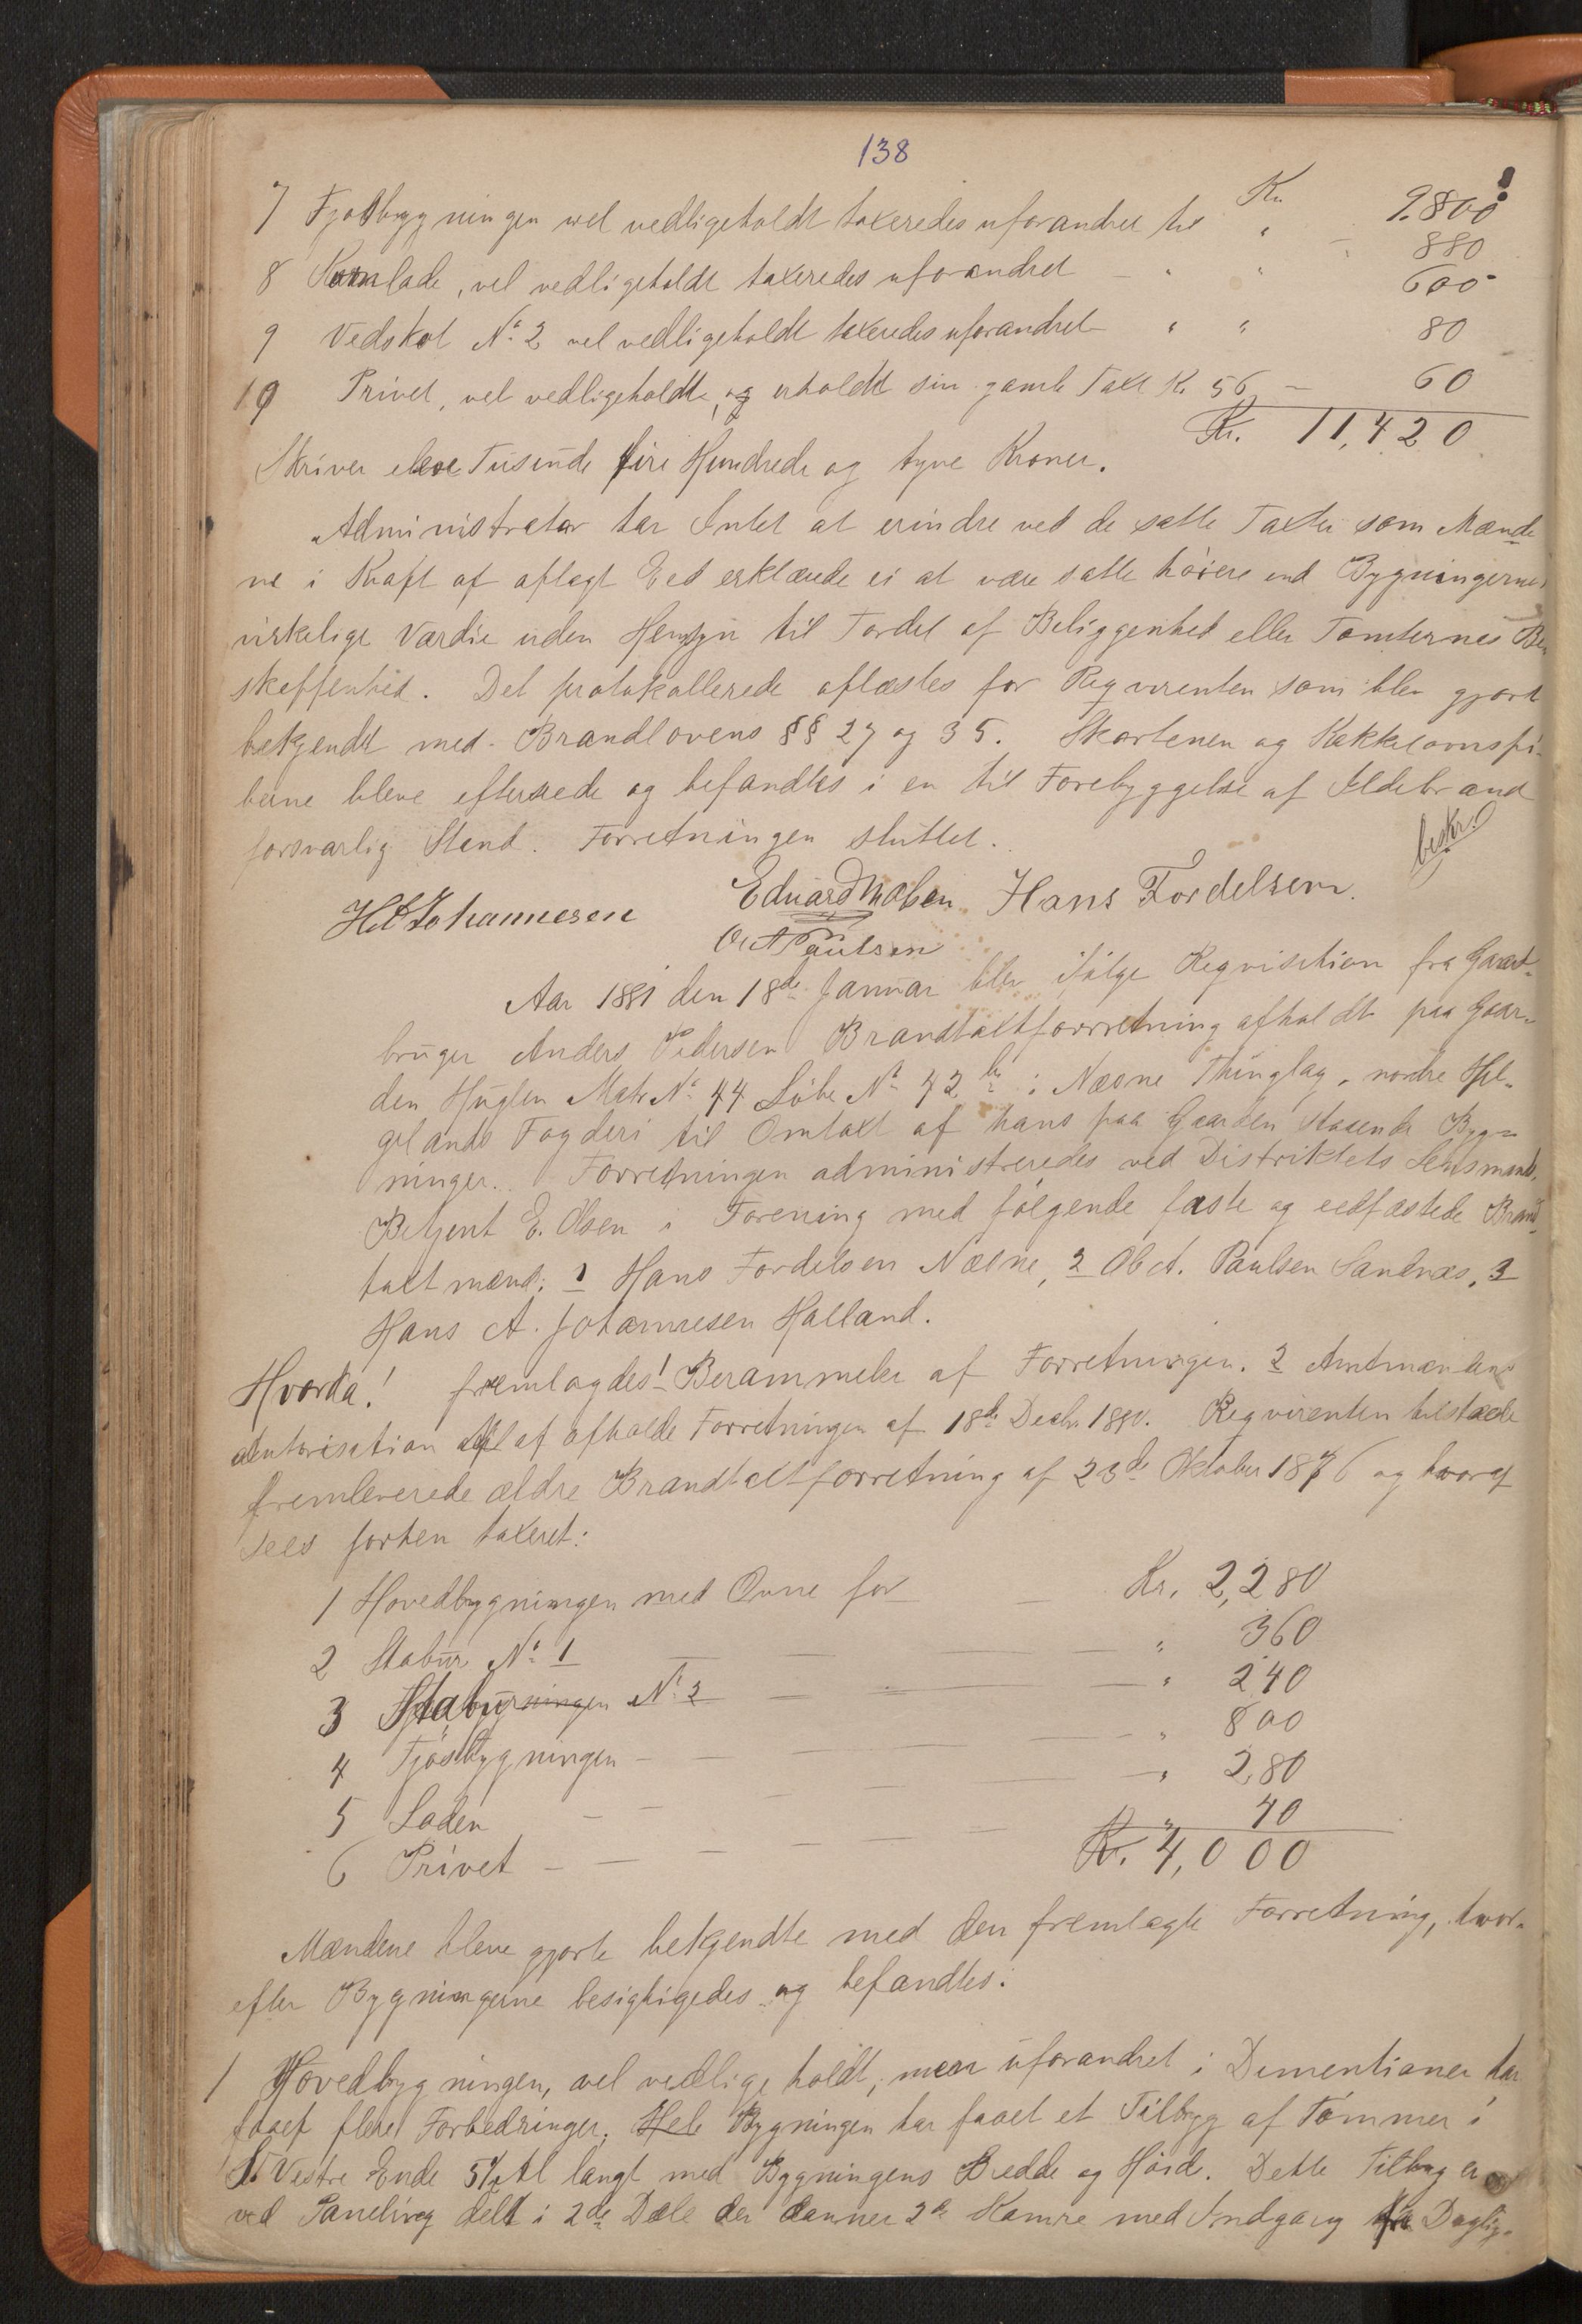 138
Kr. 9.800
7 Fjøsbygningen vel vedligeholdt taxeredes uforandret til " - 880
8 Kornlade, vel vedligeholdt taxeredes uforandret - " " 600
9 Vedskot No 2 vel vedligeholdt taxeredes uforandret " " 80
10 Privet, vel vedligeholdt, og erholdt sin gamle Taxt Kr 56 - 60
Kr. 11,420
Skriver eleve Tusinde fire Hundrede og tyve Kroner.
Administrator har Intet at erindre ved de satte Taxter som Mænde
ne i Kraft af aflagt Eed erklærede ei at være satte høiere end Bygningernes
virkelige Værdie uden Hensyn til Fordel af Beliggenhed eller Tomternes Be
skaffenhed. Det protokollerede oplæstes for Reqvirenten som blev gjort
bekjendt med Brandlovens §§ 27 og 35. Skorstenen og Kakkelovnspi-
berne bleve efterseede og befandtes i en til Forebyggelse af Ildebrand
forsvarlig Stand. Forretningen sluttet.
beskr.
H A Johannesen Eduard Hans Fordelsen
Ol A Paulsen
Aar 1891 den 18de Januar blev ifølge Reqvisition fra Gaard-
bruger Anders Pedersen Brandtaxtforretning afholdt paa Gaar-
den Huglen Matr No 44 Løbe No 42 b i Næsne Thinglag, nordre Hel-
gelands Fogderi til Omtaxt af hans paa Gaarden staaende Byg-
ninger. Forretningen administreredes ved Distriktets Lensmands
Betjent E. Olsen i Forening med følgende faste og eedfæstede Brand
taxtmænd: 1 Hans Fordelsen Næsne, 2 Ol A. Paulsen Sandnæs, 3
Hans A. Johannesen Halland.
Hvorda! fremlagdes 1 Berammelse af Forretningen. 2 Amtmandens
Autorisation til at afholde Forretningen af 18de Decbr 1890. Reqvirenten tilstæde
fremleverede ældre Brandtaxtforretning af 23de Oktober 1876 og hvoraf
sees forhen taxeret:
1 Hovedbygningen med Ovne for - Kr. 2,280
2 Stabur No 1 - " 360
3 Stabur No 2 - " 240
4 Fjøsbygningen - " 800
5 Laden - " 280
6 Privet - " 40
Kr. 4,000
Mændene bleve gjorte bekjendte med den fremlagte Forretning, hvor-
efter Bygningerne besigtigedes og befandtes:
1 Hovedbygningen, vel vedligeholdt, men uforandret i Dimentioner har
faaet flere Forbedringer. Hele Bygningen har faaet et Tilbyg af Tømmer i
Vestre Ende 5½ Al langt med Bygningens Bredde og Høide. Dette Tilbyg er
ved Paneling delt i 2de Dele der danner 2de Kamre med Indgang fra Daglig-